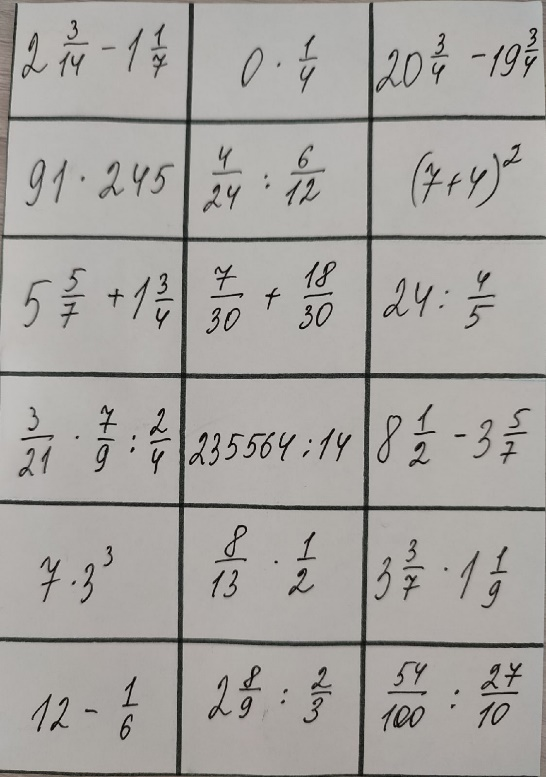 2 3/14 - 1 1/7
0 · 1/4
20 3/4 - 19 3/4
91 · 245
4/24 : 6/12
(7+4)²
5 5/7 + 1 3/4
7/30 + 18/30
24 : 4/5
3/21 · 7/9 : 2/4
235564 : 14
8 1/2 - 3 5/7
7 · 3³
8/13 · 1/2
3 3/7 · 1 1/9
12 - 1/6
2 8/9 : 2/3
54/100 : 27/10